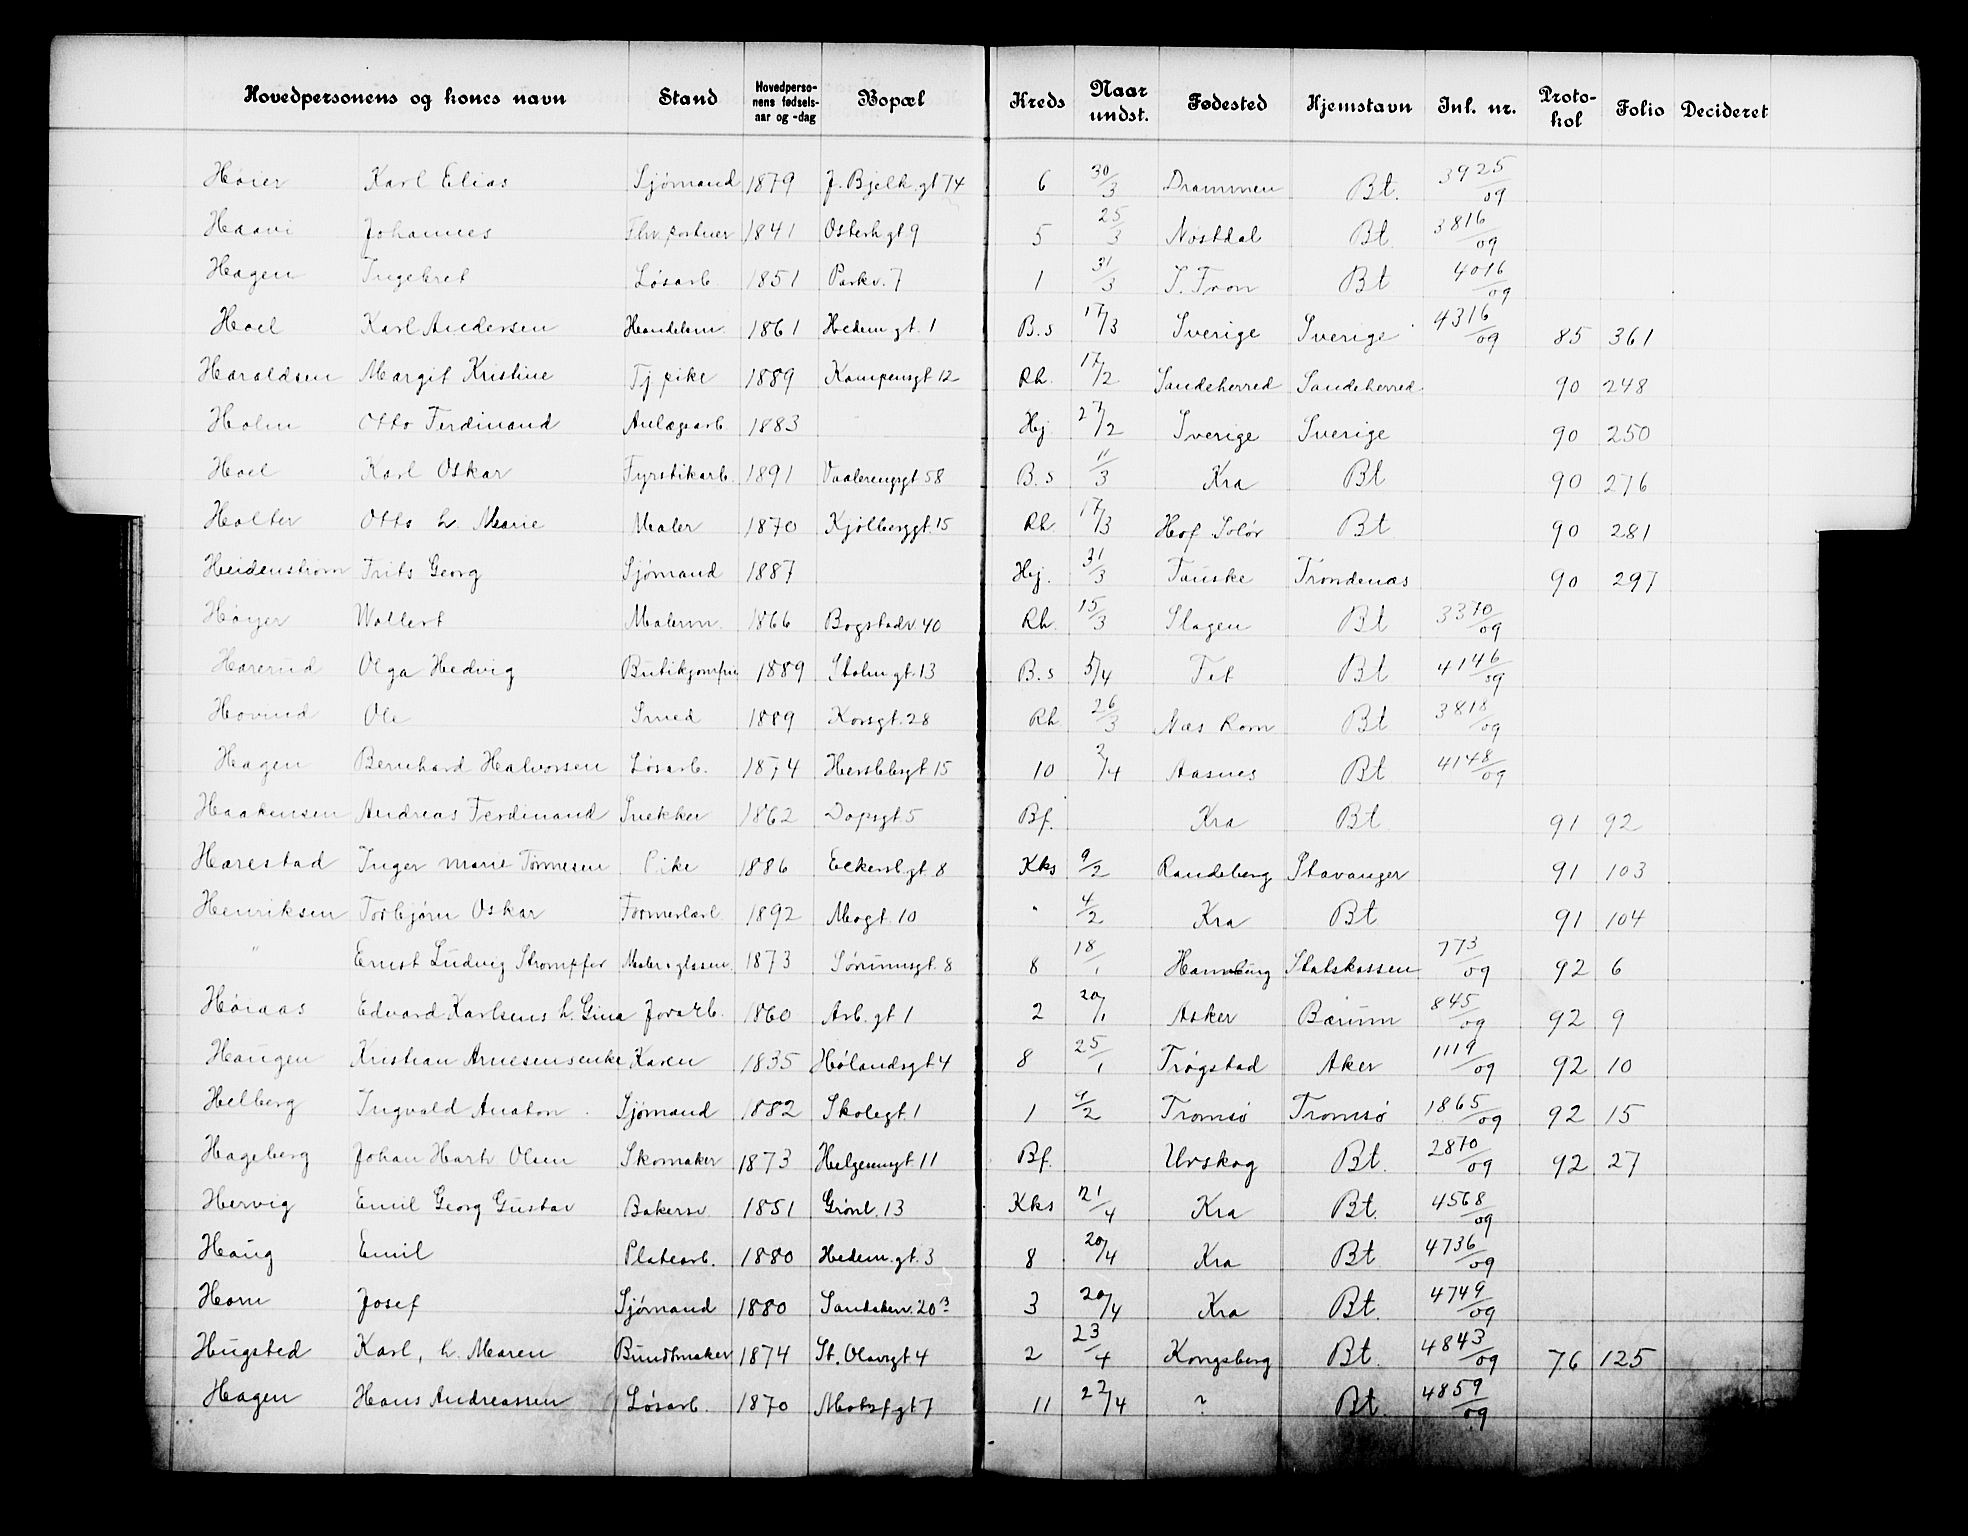 Hovedpersonens og kones navn Stand Hovedperso-nens fødsels-aar og -dag Bopæl Kreds Naar undst. Fødested Hjemstavn Inl. nr. Proto-kol Folio Decideret
Høier Karl Elias Sjømand 1879 J. Bjelk. gt 74 6 30/3 Drammen Bt. 3925/09
Haavi Johannes Fhv. portner 1841 Osterh gt 9 5 25/3 Nøstdal Bt 3816/09
Hagen Ingebret Løsarb. 1851 Parkv. 7 1 31/3 S. Fron Bt 4016/09
Hoel Karl Andersen Handelsm. 1861 Hedem gt. 1 B.s 17/3 Sverige Sverige 4316/09 85 361
Haraldsen Margit Kristine Tj pike 1889 Kampensgt 12 Rh. 17/2 Sandeherred Sandeherred 90 248
Holm Otto Ferdinand Anlægsarb 1883 Hj. 27/2 Sverige Sverige 90 250
Hoel Karl Oskar Fyrstikarb. 1891 Vaalerengsgt 58 B.s 11/3 Kra Bt 90 276
Holter Otto h. Marie Maler 1870 Kjølberggt. 15 Rh. 17/3 Hof Solør Bt 90 281
Heidenstrøm Frits Georg Sjømand 1887 Hj. 31/3 Fauske Trondenæs 90 297
Høyer Wollert Malerm. 1866 Bogstadv. 40 Rh. 15/3 Slagen Bt 3370/09
Harerud Olga Hedvig Butikjomfru 1889 Stolm gt. 13 B.s 5/4 Fet Bt 4146/09
Hovind Ole Smed 1889 Korsgt. 28 Rh 26/3 Næs Rom Bt 3818/09
Hagen Bernhard Halvorsen Løsarb. 1874 Herslebsgt 15 10 2/4 Aasnes Bt 4148/09
Haakensen Andreas Ferdinand Snekker 1862 Dopsgt 5 Bf. Kra Bt 91 92
Harestad Inger Marie Tønnesen Pike 1886 Eckersb.gt. 8 Kks 9/2 Randeberg Stavanger 91 103
Henriksen Torbjørn Oskar Formerlærl. 1892 Mogt. 10 " 4/2 Kra Bt 91 104
" Ernst Ludvig Strompfer Maler o glassm. 1873 Sørumsgt. 8 8 18/1 Hamburg Statskassen 773/09 92 6
Høiaas Edvard Karlsens h. Gina Jordarb. 1860 Arb. gt 1 2 20/1 Asker Bærum 845/09 92 9
Haugen Kristian Arnesens enke Karen 1835 Hølandsgt 4 8 25/1 Trøgstad Aker 1119/09 92 10
Helberg Ingvald Anaton Sjømand 1882 Skolegt 1 1 4/2 Tromsø Tromsø 1865/09 92 15
Hageberg Johan Harh Olsen Skomaker 1873 Helgesensgt 11 Bf. Urskog Bt. 2870/09 92 27
Hervig Emil Georg Gustav Bakersv. 1851 Grønl. 13 Kks 21/4 Kra Bt. 4568/09
Haug Emil Platearb. 1880 Hedem. gt. 3 8 20/4 Kra Bt 4736/09
Horn Josef Sjømand 1880 Sandakerv. 20 B 3 20/4 Kra Bt. 4749/09
Hugsted Karl, h. Maren Bundtmaker 1874 St. Olavsgt 4 2 23/4 Kongsberg Bt. 4843/09 76 125
Hagen Hans Andreassen Løsarb. 1870 Motzfgt 7 11 22/4 ? Bt. 4859/09